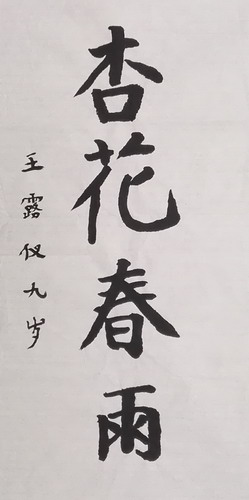 杏花春雨
王露仪九岁